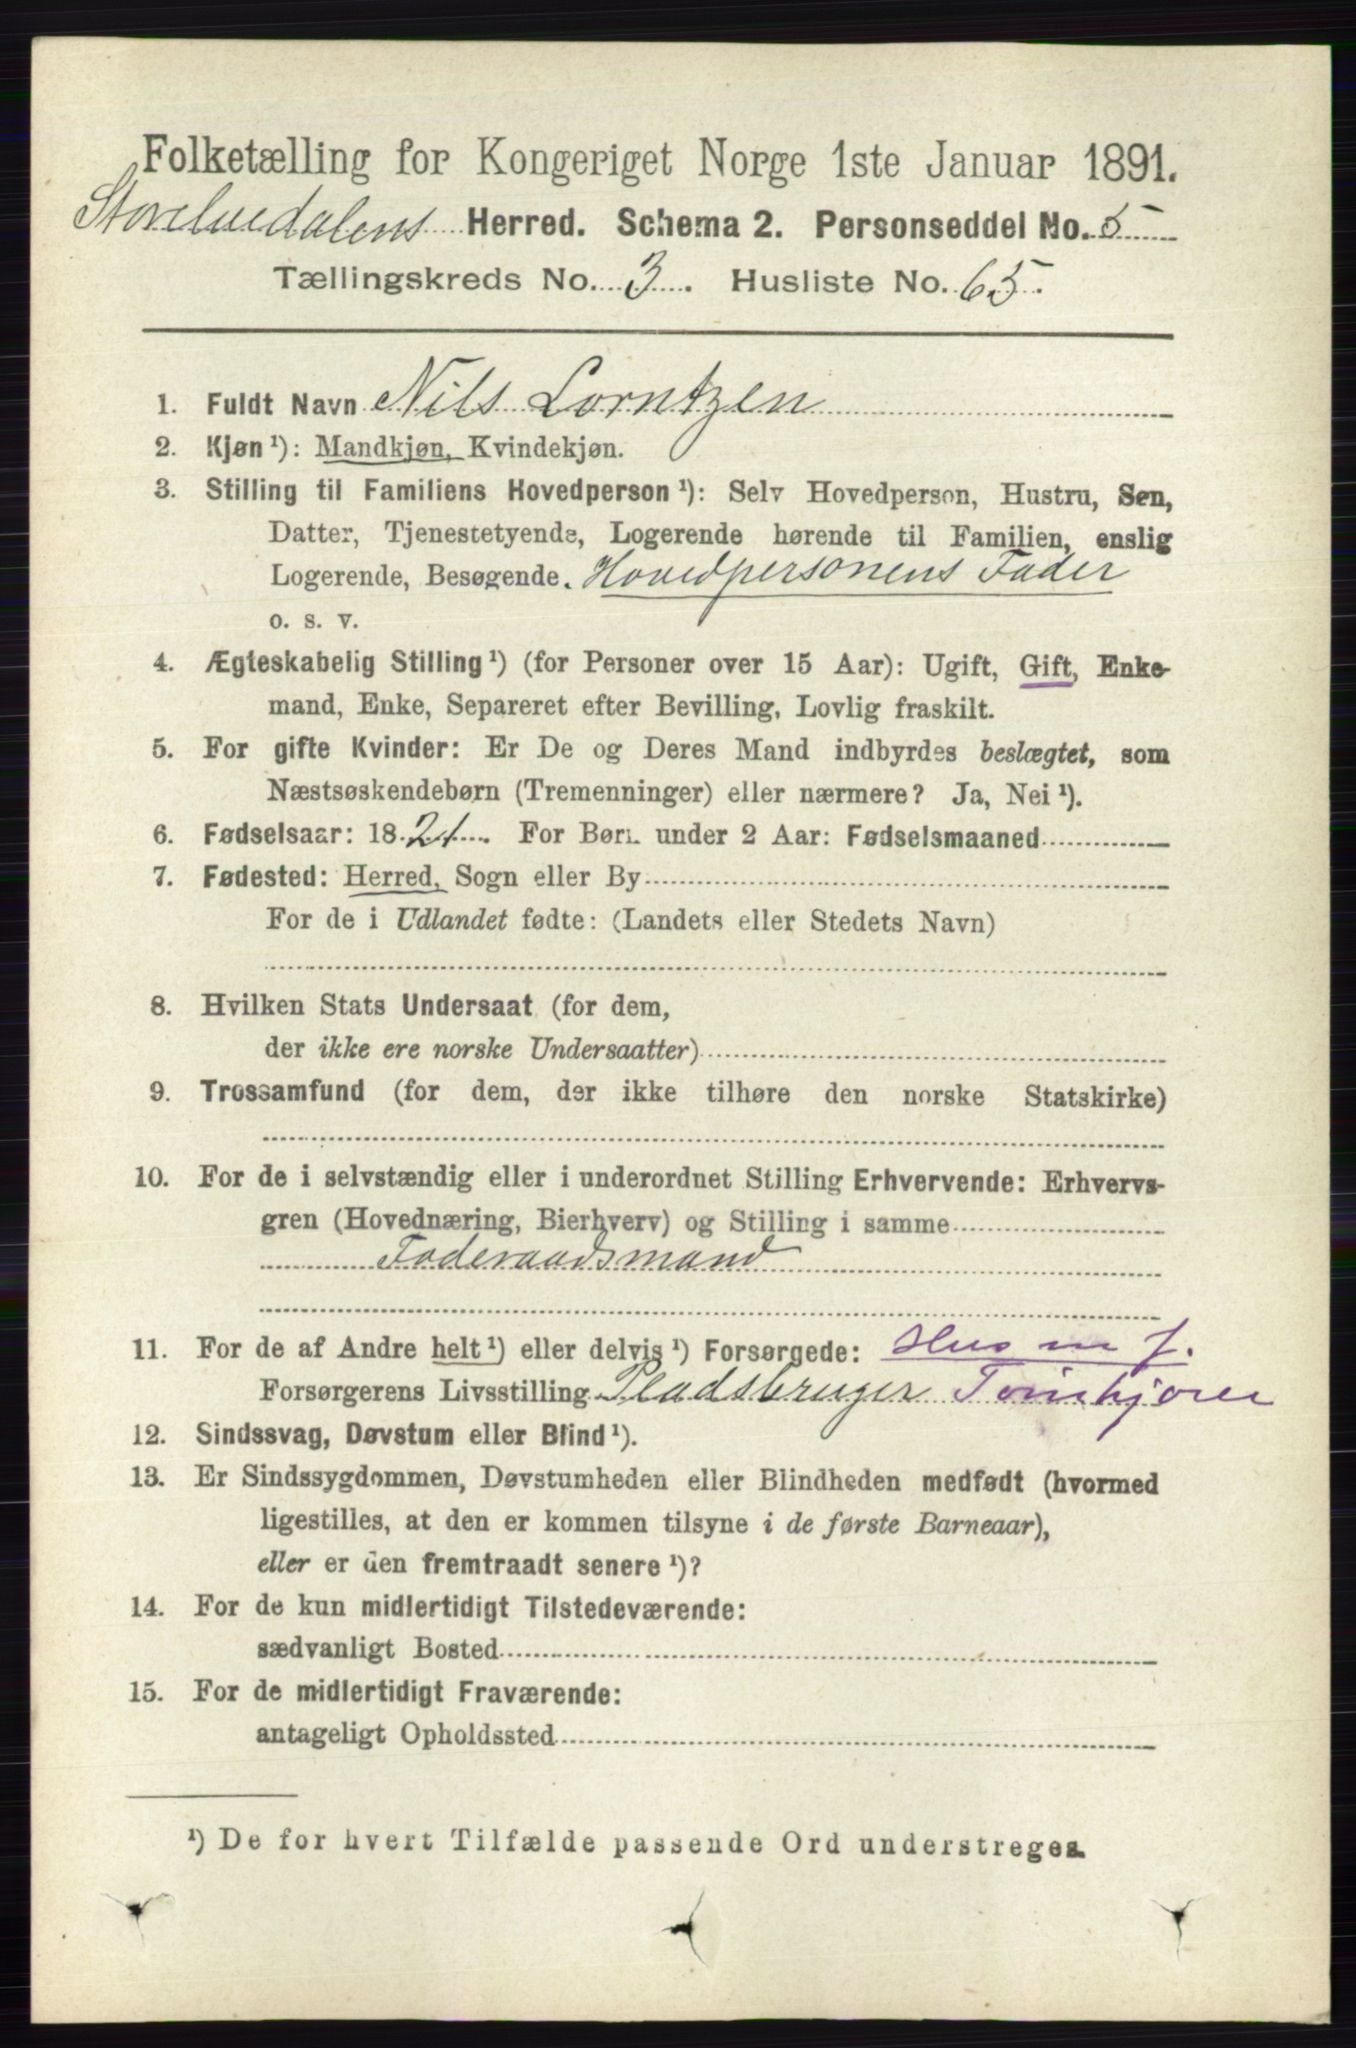 Folketælling for Kongeriget Norge 1ste Januar 1891.
Storelvedalens Herred. Schema 2. Personseddel No. 5
Tællingskreds No. 3. Husliste No. 65.
1. Fuldt Navn Nils Lorntzen
2. Kjøn¹): Mandkjøn, Kvindekjøn.
3. Stilling til Familiens Hovedperson¹): Selv Hovedperson, Hustru, Søn,
Datter, Tjenestetyende, Logerende hørende til Familien, enslig
Logerende, Besøgende. Hovedpersonens Fader
o. s. v.
4. Ægteskabelig Stilling¹) (for Personer over 15 Aar): Ugift, Gift, Enke-
mand, Enke, Separeret efter Bevilling, Lovlig fraskilt.
5. For gifte Kvinder: Er De og Deres Mand indbyrdes beslægtet, som
Næstsøskendebørn (Tremenninger) eller nærmere? Ja, Nei¹).
6. Fødselsaar: 1821. For Børn under 2 Aar: Fødselsmaaned
7. Fødested: Herred, Sogn eller By
For de i Udlandet fødte: (Landets eller Stedets Navn)
8. Hvilken Stats Undersaat (for dem,
der ikke ere norske Undersaatter)
9. Trossamfund (for dem, der ikke tilhøre den norske Statskirke)
10. For de i selvstændig eller i underordnet Stilling Erhvervende: Erhvervs-
gren (Hovednæring, Bierhverv) og Stilling i samme
Foderaadsmand
11. For de af Andre helt¹) eller delvis¹) Forsørgede: Hus m J.
Forsørgerens Livsstilling Pladsbruger Tømkjører
12. Sindssvag, Døvstum eller Blind¹).
13. Er Sindssygdommen, Døvstumheden eller Blindheden medfødt (hvormed
ligestilles, at den er kommen tilsyne i de første Barneaar),
eller er den fremtraadt senere¹)?
14. For de kun midlertidigt Tilstedeværende:
sædvanligt Bosted
15. For de midlertidigt Fraværende:
antageligt Opholdssted
¹) De for hvert Tilfælde passende Ord understreges.